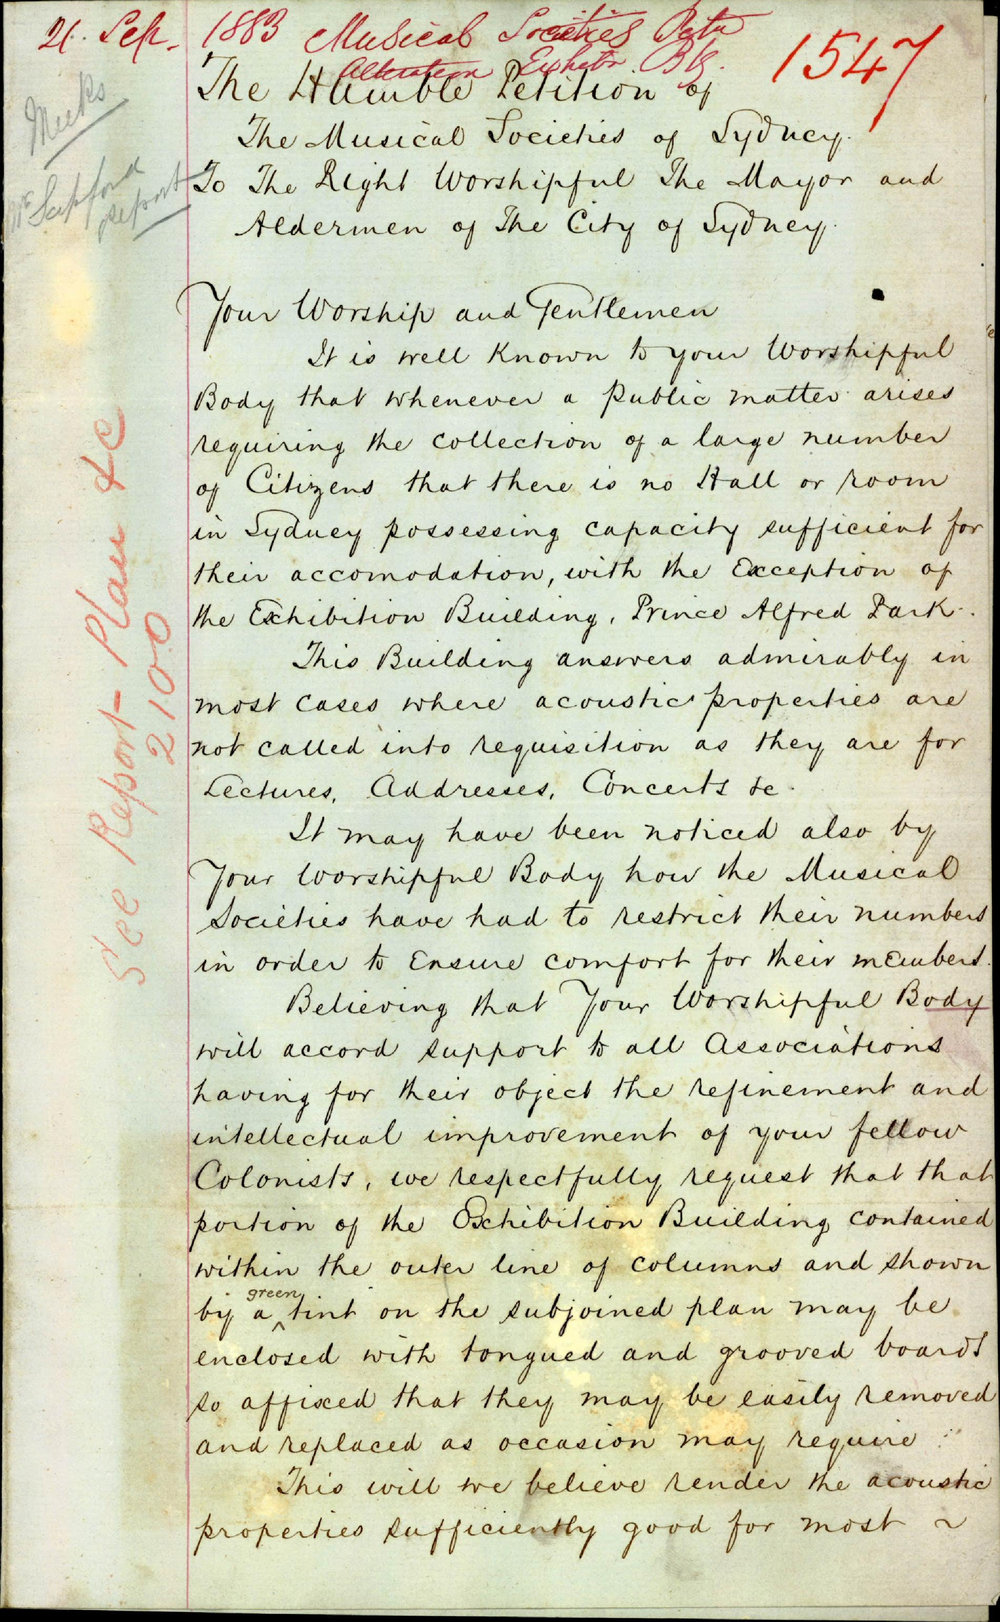 21. Sep. 1883 Musical Societies Petn
Alteration Exhibtn Bg.
1547
Meeks
Mr Sapsford
report
The Humble Petition of
The Musical Societies of Sydney.
To The Right Worshipful The Mayor and
Aldermen of The City of Sydney.
Your Worship and Gentlemen
It is well known to your Worshipful
Body that whenever a public matter arises
requiring the collection of a large number
of Citizens that there is no Hall or room
in Sydney possessing capacity sufficient for
their accomodation, with the Exception of
the Exhibition Building, Prince Alfred Park.
This Building answers admirably in
most cases where acoustic properties are
not called into requisition as they are for
Lectures, Addresses, Concerts &c.
It may have been noticed also by
Your Worshipful Body how the Musical
Societies have had to restrict their numbers
in order to Ensure comfort for their members.
Believing that Your Worshipful Body
will accord support to all Associations
having for their object the refinement and
intellectual improvement of your fellow
Colonists, we respectfully request that that
portion of the Exhibition Building contained
within the outer line of columns and shown
by a green tint on the subjoined plan may be
enclosed with tongued and grooved boards
so affixed that they may be easily removed
and replaced as occasion may require.
This will we believe render the acoustic
properties sufficiently good for most ~
See Report- Plan &c
2100